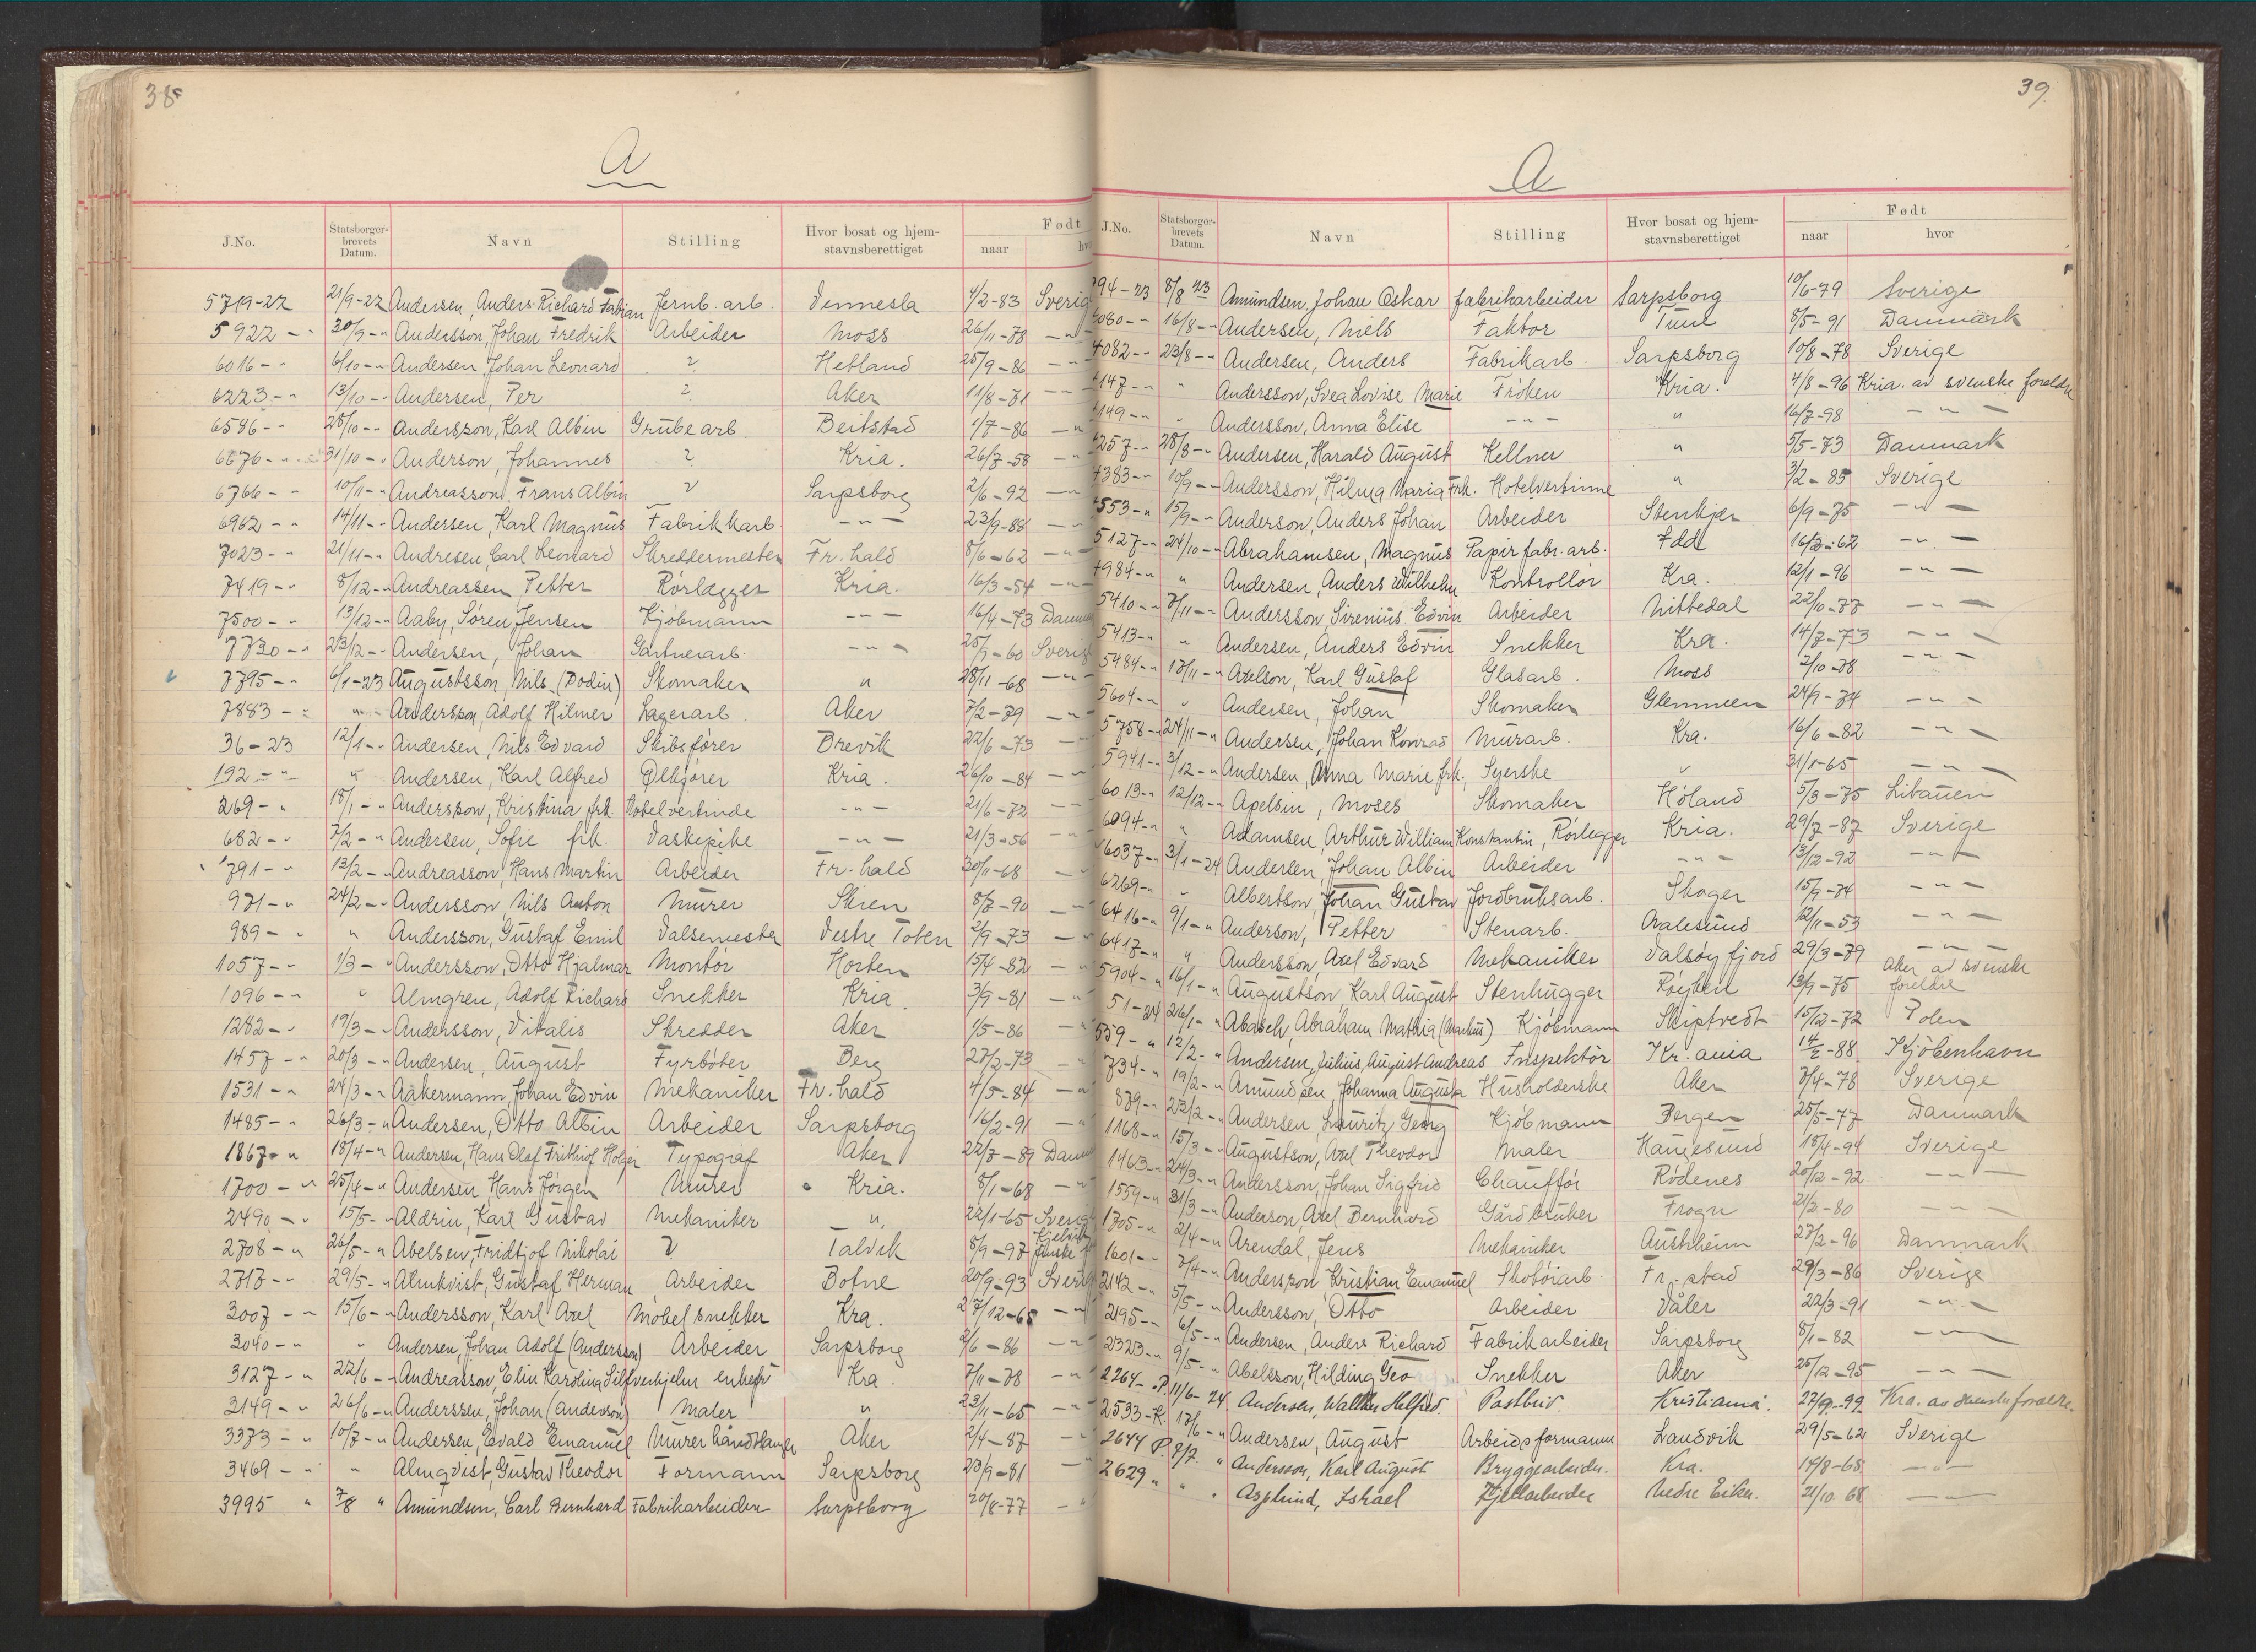 38
A
J.No. Statsborger-brevets Datum. Navn Stilling Hvor bosat og hjem-stavnsberettiget Født naar
5719-22 21/9-22 Andersen, Anders Richard Fabian Jernb. arb. Vennesla 4/2-83 Sverig
5922 - " 30/9 - " Andersson, Johan Fredrik Arbeider Moss 26/11-78 - " -
6016 - " 6/10 - " Andersen Johan Leonard ? Hetland 25/9-86 - " -
6223 - " 13/10 - " Andersen, Per ? Aker 11/8-71 - " -
6586 - " 28/10 - " Andersson, Karl Albin Grubearb. Beitstad 1/7-86 - "
6676 - " 31/10 - " Anderson, Johannes ? Kria. 26/7-58 - "
6766 - " 10/11 - " Andreasson, Frans Albin ? Sarpsborg 2/6-92 - " -
6962 - " 14/11 - " Andersen, Karl Magnus Fabrikkarb - " - 23/9-88 - "
7023 - " 21/11 - " Andresen, Carl Leonard Skreddermester Fr. hald 8/6-62 - " -
7419 - " 8/12 - " Andreassen, Petter Rørlegger Kria. 16/3-54 - " -
7500 - " 13/12 - " Aaby, Søren Jensen Kjøbmann - " - 16/4-73 Danm
7730 - " 23/12 - " Andersen, Johan Gartnerarb. - " - 25/7-60 Sverig
7795 - " 6/1-23 Augustsson, Nils (Bodin) Skomaker " 28/11-68 - " -
7883 - " " - Andersson, Adolf Hilmer Lagerarb. Aker 7/2-79 - " -
36-23 12/1 - " Andersen, Nils Edvard Skibsfører Brevik 22/6-73 - "
192 - " " Andersen, Karl Alfred Ølkjører Kria. 26/10-84 - " -
269 - " 18/1 - " Andersson, Kristina frk. Hotelvertinde - " - 21/6-72 - "
682 - " 7/2 - " Andersen, Sofie frk. Vaskepike - " - 21/3-56 - "
791 - " 13/2 - " Andreasson, Hans Martin Arbeider Fr. hald 30/11-68 - "
971 - " 24/2 - " Andersson, Nils Anton Murer Skien 8/7-90 - "
989 - " " Andersson, Gustaf Emil Valsemester Vestre Toten 2/9-73 - "
1057 - " 1/3 - " Andersson, Otto Hjalmar Montør Horten 15/4-82 - "
1096 - " " Almgren, Adolf Richard Snekker Kria. 3/9-81 - "
1282 - " 19/3 - " Andersson, Vitalis Skredder Aker 1/5-86 - "
1457 - " 20/3 - " Andersen, August Fyrbøter Berg 27/2-73 - "
1531 - " 24/3 - " Aakermann, Johan Edvin Mekaniker Fr. hald 4/5-84 - "
1485 - " 26/3 - " Andersen, Otto Albin Arbeider Sarpsborg 16/2-91 - "
1867 - " 18/4 - " Andersen, Hans Olaf Frithiof Holger Typograf Aker 22/7-89 Danm
1700 - " 25/4 - " Andersen Hans Jørgen Murer Kria. 8/1-68 - "
2490 - " 15/5 - " Aldrin, Karl Gustav Mekaniker - " 22/1-65 Sverig
2708 - " 26/5 - " Abelsen, Fridtjof Nikolai ? Talvik 8/9-97
2717 - " 29/5 - " Almkvist, Gustaf Herman Arbeider Botne 20/9-93 Sverig
3007 - " 15/6 - " Andersson, Karl Axel Møbelsnekker Kra. 27/12-65 - "
3040 - " " Andersen, Johan Adolf (Andersson) Arbeider Sarpsborg 2/6-86 - "
3127 - " 22/6 - " Andreasson, Elin Karolina Silfverhjelm enkefr Kra. 7/11-78 - "
3149 - " 26/6 - " Anderssen, Johan (Anderson) Maler " 23/11-65 - "
3373 - " 10/7 - " Andersen, Evald Emanuel Murer håndtlanger Aker 2/4-87 - "
3469 - " " Almqvist, Gustav Theodor Formann Sarpsborg 23/9-81 -
3995 " 7/8 " Amundsen, Carl Bernhard Fabrikarbeider Sarpsborg 20/8-77 - "
39.
A
J.No. Statsborger-brevets Datum. Navn Stilling Hvor bosat og hjem-stavnsberettiget Født naar hvor
94-23 8/8 23 Amundsen, Johan Oskar fabrikarbeider Sarpsborg 10/6-79 Sverige
4080 - " 16/8 - " Andersen, Niels Faktor Tune 8/5-91 Danmark
4082 - " 23/8 - " Andersen, Anders Fabrikarb. Sarpsborg 10/8-78 Sverige
4147 - " " Andersson, Svea Lovise Marie Frøken Kria. 4/8-96 Kria. av svenske foreldre
4149 - " " Andersson, Anna Elise - " - " 16/7-98 - " -
4257 - " 28/8 - " Andersen, Harald August Kellner " 5/5-73 Danmark
4383 - " 10/9 - " Andersson, Hilma Maria Frk. Hotelvertinne " 3/2-85 Sverige
4553 - " 15/9 - " Anderson, Anders Johan Arbeider Stenkjer 6/9-75 - " -
5127 - " 24/10 - " Abrahamsen, Magnus Papirfabr. arb. Idd 16/2-62 - " -
4984 - " " Andersen, Anders Wilhelm Kontrollør Kra. 12/1-96 - " -
5410 - " 7/11 - " Andersson, Sirenius Edvin Arbeider Nittedal 22/10-77 - " -
5413 - " " Andersen, Anders Edvin Snekker Kra. 14/7-73 - " -
5484 - " 17/11 - " Axelson, Karl Gustaf Glasarb. Moss 2/10-78 - " -
5604 - " " Andersen, Johan Skomaker Glemmen 24/9-74 - " -
5758 - " 24/11 - " Andersen, Johan Konrad Murarb. Kra. 16/6-82 - " -
5941 - " 3/12 - " Andersen, Anna Marie frk. Syerske " 31/1-65 - " -
6013 - " 12/12 - " Apelsin, Moses Skomaker Høland 5/3-75 Litauen
6094 - " " Adamsen, Arthur William Konstantin, Rørlegger Kria. 29/7-87 Sverige
6037 - " 3/1-24 Andersen, Johan Albin Arbeider - " - 13/12-92 - " -
6269 - " " Albertson, Johan Gustav Jordbruksarb. Skoger 15/9-74 - " -
6416 - " 9/1 - " Anderson, Petter Stenarb. Aalesund 12/11-53 - " -
6417 - " " Andersson, Axel Edvard Mekaniker Valsøyfjord 29/3-79 - " -
5904 - " 16/1 - " Augustson, Karl August Stenhugger Røyken 13/9-75 Aker av svenske foreldre
51-24 26/1 - " Abasch, Abraham Mathia (Markus) Kjøbmann Skiptvedt 15/12-72 Polen
559 - " 12/2 - " Andersen, Julius, August Andreas Inspektør Kr. ania 14/2-88 Kjøbenhavn
734 - " 19/2 - " Amundsen, Johanna Augusta Husholderske Aker 7/4-78 Sverige
879 - " 23/2 - " Andersen, Lauritz Georg Kjøbmann Bergen 25/5-77 Danmark
1168 - " 15/3 - " Augustson, Axel Theodor Maler Haugesund 15/4-94 Sverige
1463 - " 24/3 - " Andersson, Johan Sigfrid Chauffør Rødenes 20/12-92 - " -
1559 - " 31/3 - " Anderson, Axel Bernhard Gårdbruker Frogn 21/2-80 - " -
1705 - " 2/4 - " Arendal, Jens Mekaniker Austrheim 27/2-96 Danmark
1601 - " 7/4 - " Andersson, Kristian Emanuel Skotøiarb. Fr. stad 29/3-86 Sverige
2142 - " 5/5 - " Andersson, Otto Arbeider Våler 22/3-91 - " -
2195 - " 6/5 - " Andersen, Anders Richard Fabrikarbeider Sarpsborg 8/1-82 - " -
2323 - " 9/5 - " Abelsson, Hilding Geo Snekker Aker 25/12-95 - " -
2264 - P. 11/6-24 Andersen, Walther Helfred. Postbud Kristiania. 27/9-99 Kra. av svenske foreldre.
2533-K. 17/6 - " Andersen, August Arbeidsformann Landvik 29/5-62 Sverige
2644 P. 8/7 " Andersson, Karl August Bryggearbeider. Kra. 14/8-68 - " -
2629 " " " Asplund, Ishael Fjellarbeider Nedre Eiker. 21/10 68 - " -